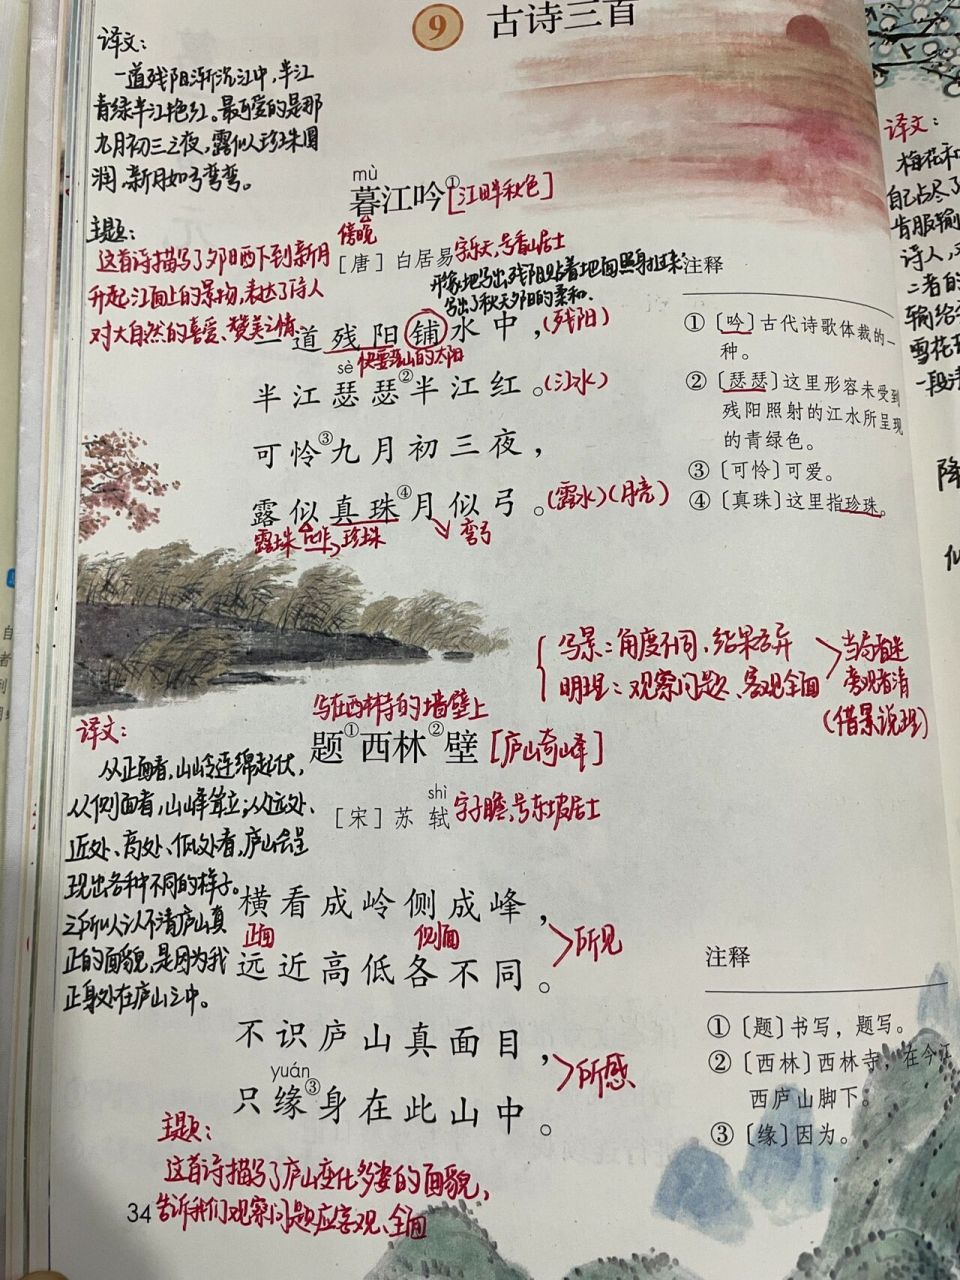 9 古诗三首
译文：
一道残阳渐沉江中，半江
青绿半江艳红。最可爱的是那
九月初三之夜，露似珍珠圆
润，新月如弓弯弯。
主题：
这首诗描写了夕阳西下到新月
升起江面上的景物，表达了诗人
对大自然的喜爱、赞美之情。
mù
暮江吟①[江畔秋色]
傍晚
［唐］白居易 字乐天，号香山居士
形象地写出残阳贴着地面照射过来
写出了秋天夕阳的柔和。
一道残阳铺水中，(残阳)
sè 快要落山的太阳
半江瑟瑟②半江红。(江水)
可怜③九月初三夜，
露似真珠④月似弓。(露水)(月亮)
露珠 珍珠 弯弓
注释
①〔吟〕古代诗歌体裁的一
种。
②〔瑟瑟〕这里形容未受到
残阳照射的江水所呈现
的青绿色。
③〔可怜〕可爱。
④〔真珠〕这里指珍珠。
写景：角度不同，结果各异
明理：观察问题、客观全面
当局者迷
旁观者清
(借景说理)
写在西林寺的墙壁上
题①西林②壁[庐山奇峰]
shì
［宋］苏轼 字子瞻，号东坡居士
译文：
从正面看，山岭连绵起伏，
从侧面看，山峰耸立；从远处、
近处、高处、低处看，庐山会呈
现出各种不同的样子。
之所以认不清庐山真
正的面貌，是因为我
正身处在庐山之中。
横看成岭侧成峰，
正面 侧面
远近高低各不同。
所见
不识庐山真面目，
yuán
只缘③身在此山中。
所感
注释
①〔题〕书写，题写。
②〔西林〕西林寺，在今江
西庐山脚下。
③〔缘〕因为。
主题：
这首诗描写了庐山变化多姿的面貌，
告诉我们观察问题应客观、全面
34
译文：
梅花和
自己占尽了
肯服输
诗人，
二者的
输给
雪花
一段
降